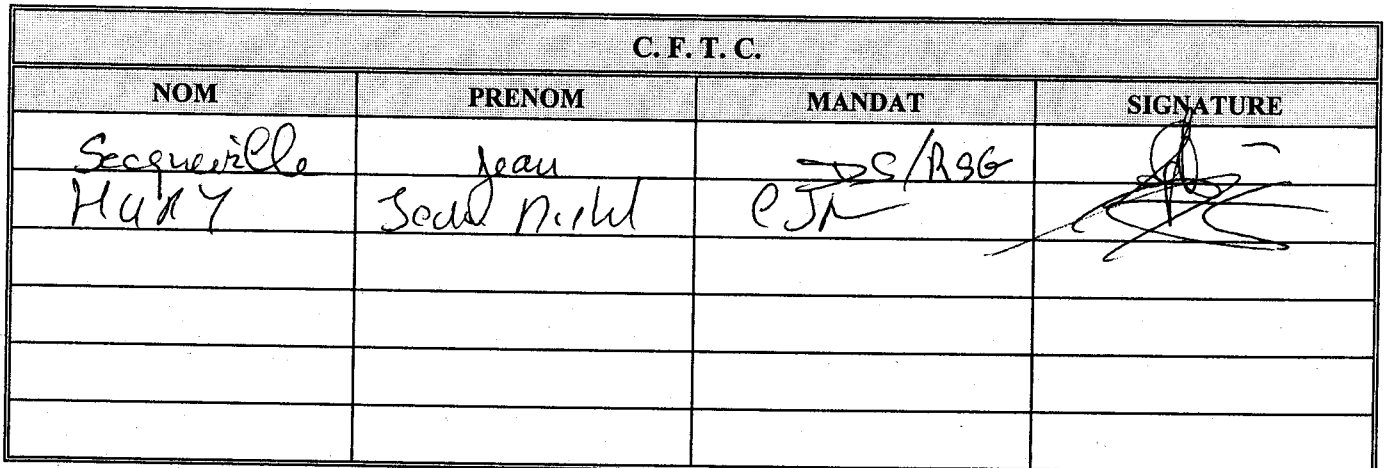 C. F. T. C.
NOM PRENOM MANDAT SIGNATURE
Secqueville Jean DS/RSG
HURY Jean